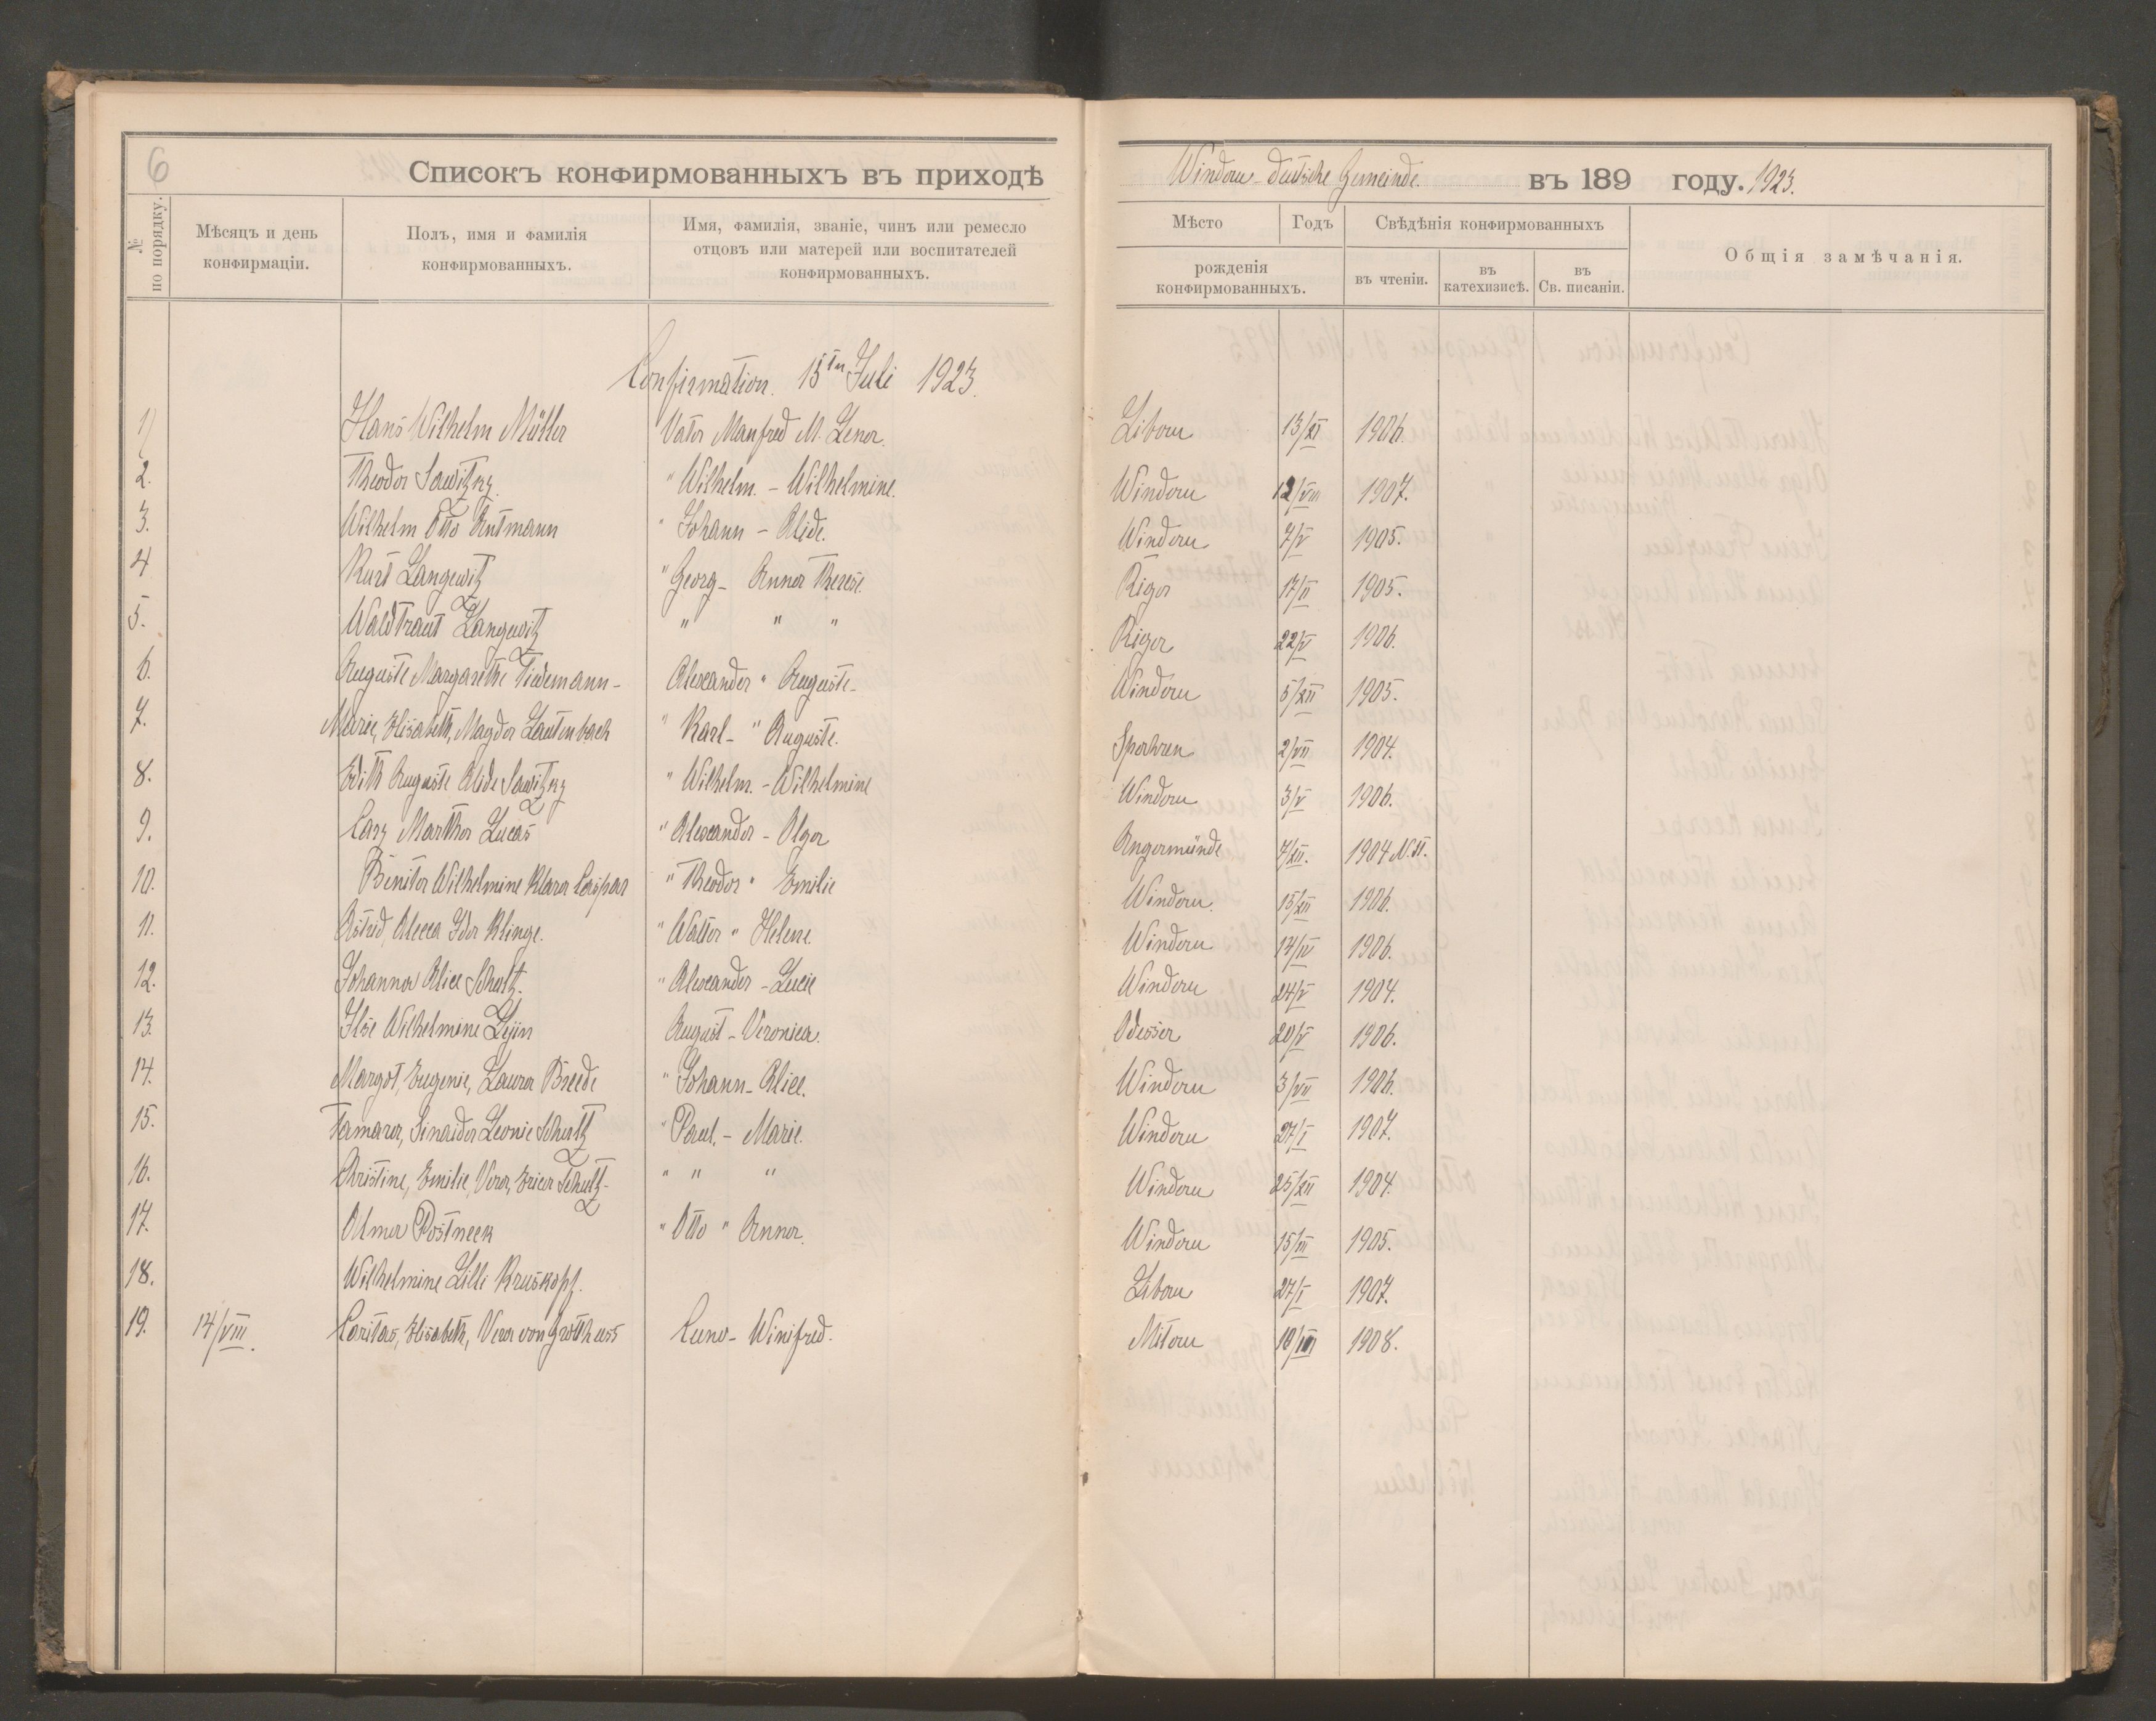 6
Списокъ конфирмованныхъ въ приходѣ Windau deutsche Gemeinde. въ 189 году. 1923.
№ по порядку.
Мѣсяцъ и день конфирмаціи.
Полъ, имя и фамилія конфирмованныхъ.
Имя, фамилія, званіе, чинъ или ремесло отцовъ или матерей или воспитателей конфирмованныхъ.
Мѣсто Годъ
рожденія конфирмованныхъ.
Свѣдѣнія конфирмованныхъ
въ чтеніи. въ катехизисѣ. въ Св. писаніи.
Общія замѣчанія.
Confirmation. 15ten Juli 1923.
1) Hans Wilhelm Müller Vater Manfred M. Lena. Libau 13/XI 1906.
2. Theodor Sawitzky " Wilhelm. - Wilhelmine. Windau 12/VIII 1907.
3. Wilhelm Otto Antmann " Johann - Alide. Windau 7/V 1905.
4 Kurt Langewitz " Georg - Anna Therese. Riga 17/II 1905.
5. Waldtraut Langewitz " " " Riga 22/V 1906.
6. Auguste Margarethe Tiedemann - Alexander " Auguste - Windau 5/XII 1905.
7. Marie, Elisabeth, Magda Lautenbach " Karl - " Auguste. Spahren 2/VII 1904.
8. Edith Auguste Alide Sawitzky " Wilhelm. - Wilhelmine Windau 3/V 1906.
9. Cary Martha Lucas " Alexander - Olga Angermünde 7/XII. 1904 N. St.
10. Benita Wilhelmine Klara Caspar " Theodor " Emilie Windau. 15/XII 1906.
11. Astrid, Alexa Ida Klinge. " Walter " Helene. Windau 14/IV 1906.
12. Johanna Alice Schultz. " Alexander - Lucie Windau 24/V 1904.
13. Ilse Wilhelmine Lejin August - Veronica. Odessa 20/V 1906.
14. Margot, Eugenie, Laura Breede " Johann - Alice. Windau 3/VII 1906.
15. Tamara, Sinaida Leonie Schultz " Paul. - Marie. Windau 27/I 1907.
16. Christine, Emilie, Vera, Erica Schultz - " " " Windau 25/XII 1904.
17. Alma Postneek " Otto " Anna. Windau 15/III 1905.
18. Wilhelmine Lilli Kruskopf. Libau 27/I 1907.
19. 14/VIII. Caritas, Elisabeth, Vera von Grotthuss Cuno - Winifred. Mitau 10/III 1908.